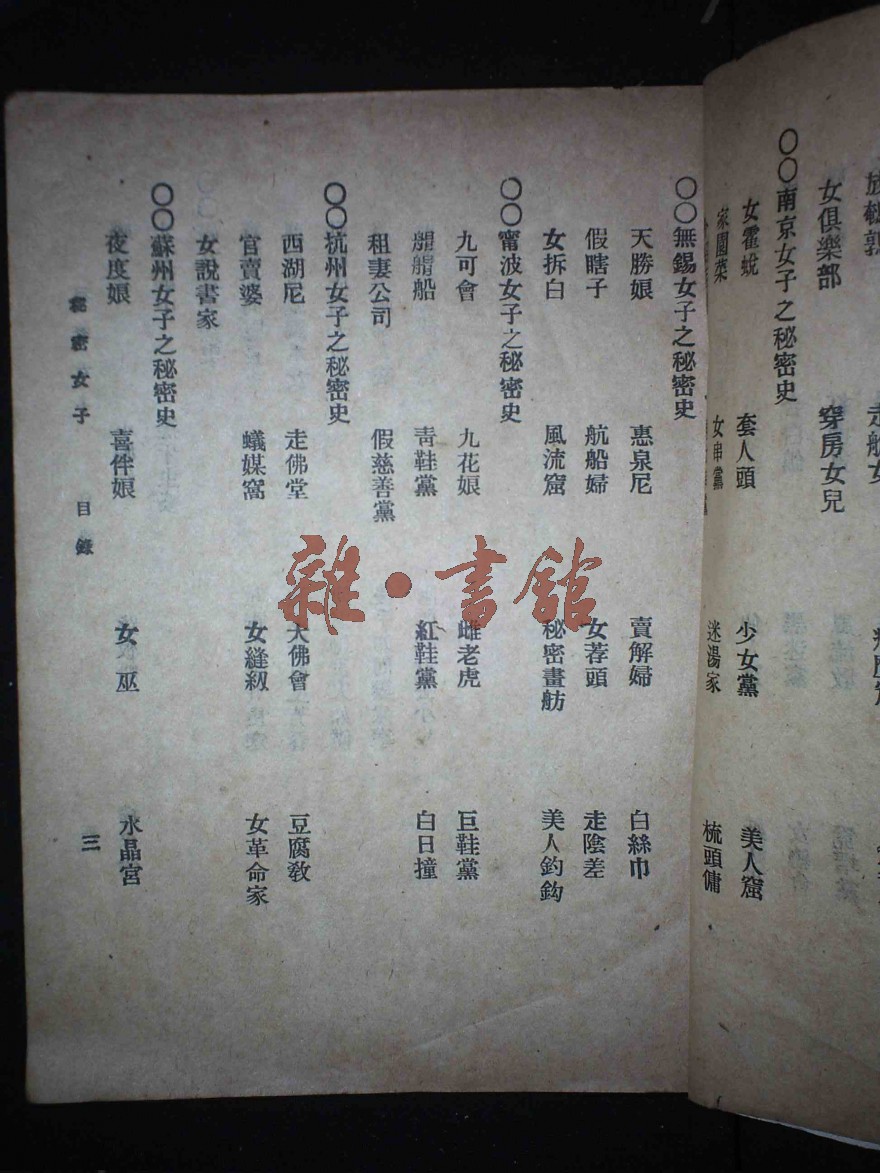 女俱樂部 穿房女兒
〇〇南京女子之秘密史
女霍蛻 套人頭 少女黨 美人窟
家園菜 女串黨 迷湯家 梳頭傭
〇〇無錫女子之秘密史
天勝娘 惠泉尼 賣解婦 白絲巾
假瞎子 航船婦 女荐頭 走陰差
女拆白 風流窟 秘密畫舫 美人釣鈎
〇〇甯波女子之秘密史
九可會 九花娘 雌老虎 巨鞋黨
船 靑鞋黨 紅鞋黨 白日撞
租妻公司 假慈善黨
〇〇杭州女子之秘密史
西湖尼 走佛堂 大佛會 豆腐敎
官賣婆 蟻媒窩 女縫紉 女革命家
女說書家
〇〇蘇州女子之秘密史
夜度娘 喜伴娘 女巫 水晶宮
秘密女子 目錄 三
雜·書館